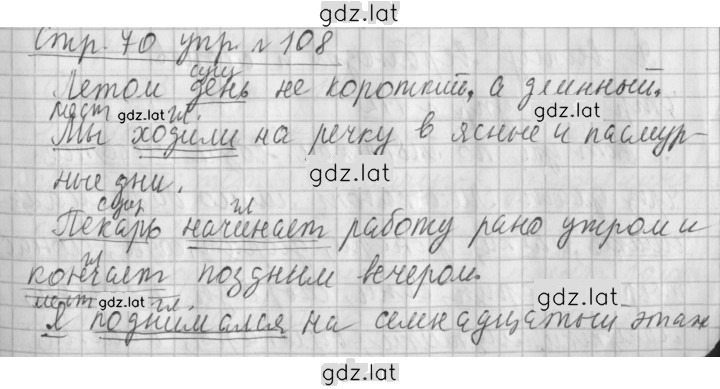 gdz.lat
Стр. 70 упр. № 108
сущ
Летом день не короткий, а длинный.
мест gdz.lat гл.
Мы ходили на речку в ясные и пасмур-
gdz.lat
ные дни.
сущ гл
Пекарь начинает работу рано утром и
гл
кончает поздним вечером.
мест gdz.lat гл.
Я поднимался на семнадцатый этаж
gdz.lat